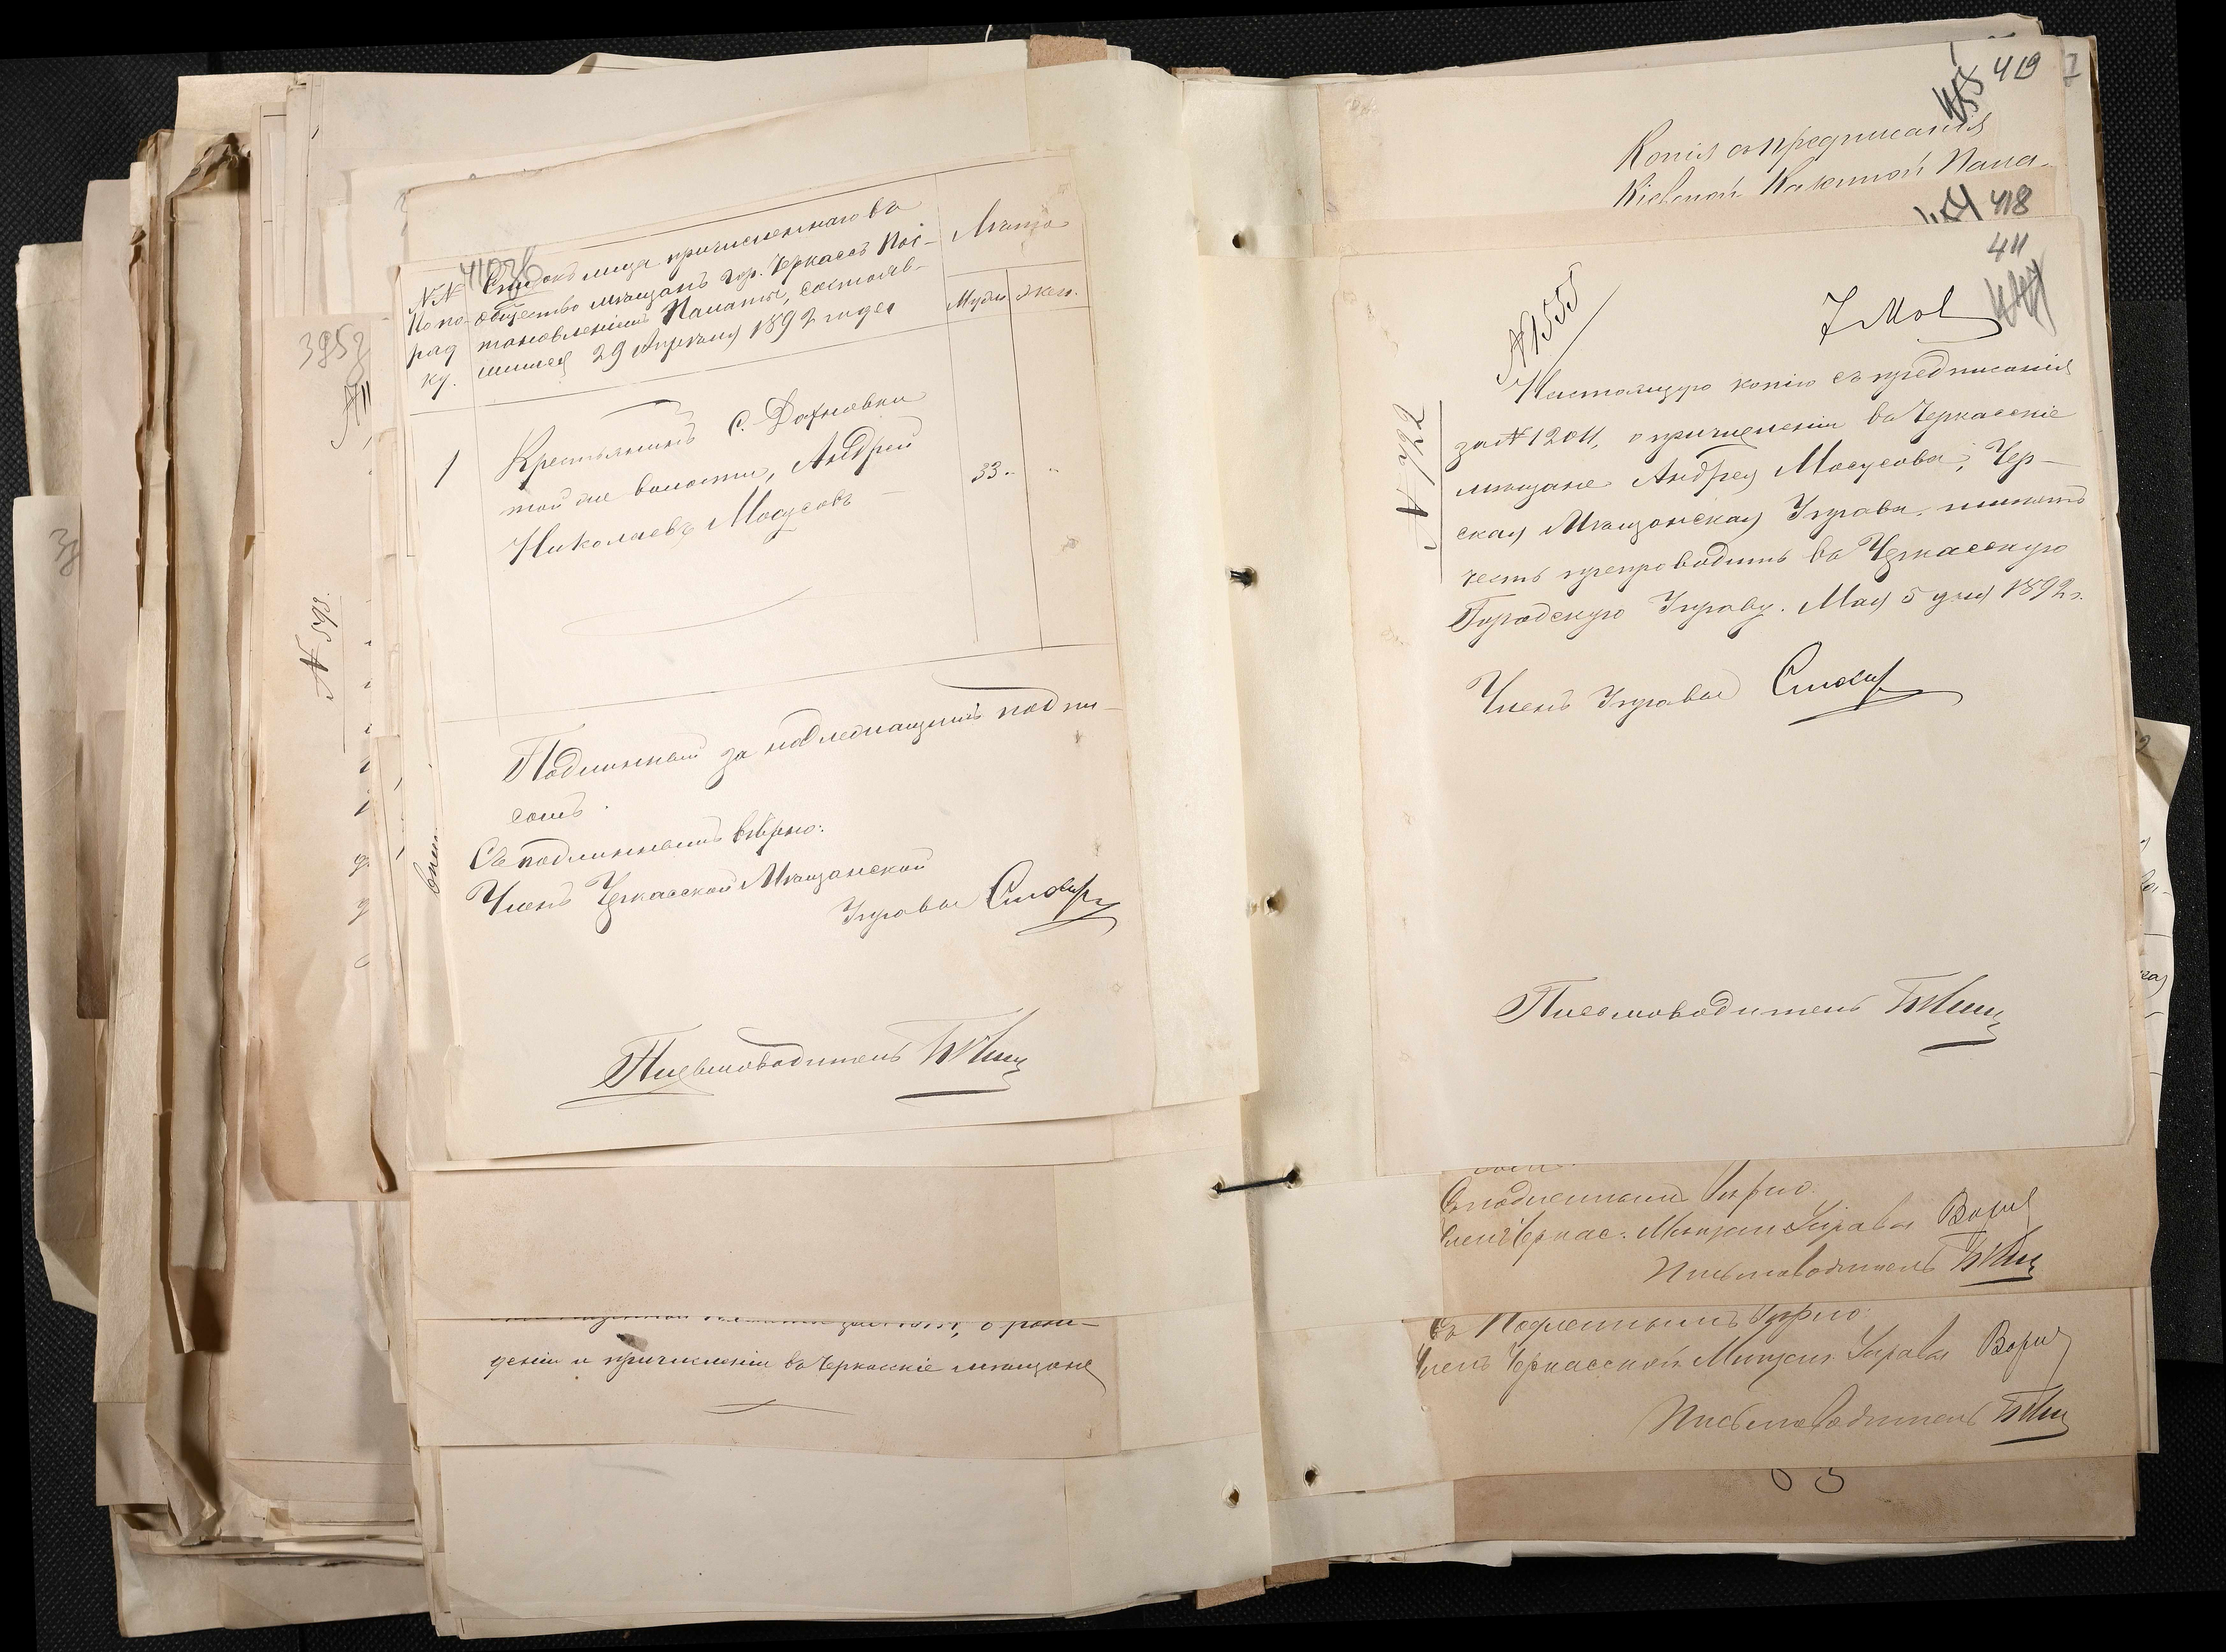 410 об
№№ по порядку.
Списокъ лица причисленнаго въ
общество мѣщанъ гор. Черкассъ Пос-
тановленіемъ Палаты, состояв-
шимся 29 Апрѣля 1892 года
Лѣта
Муж.
жен.
1
Крестьянинъ с. Дахновки
той же волости, Андрей
Николаевъ Мосусовъ
33 "
Подлинный за надлежащимъ подпи-
сомъ.
Съ подлиннымъ вѣрно:
Членъ Черкасской Мѣщанской
Управы
Письмоводитель
395
№ 593.
дѣніи и причисленіи въ Черкасскіе мѣщане
419
Копія съ предписанія
Кіевской Казенной Пала-
418
411
№ 1555
7 Мая
№ 492
Настоящую копію съ предписанія
за № 12011, о причисленіи въ Черкасскіе
мѣщане Андрея Мосусова, Чер-
ская Мѣщанская Управа имѣетъ
честь препроводить въ Черкасскую
Городскую Управу. Мая 5 дня 1892 г.
Членъ Управы
Письмоводитель
Съ подлиннымъ вѣрно:
Членъ Черкас. Мѣщан. Управы
Письмоводитель
Съ Подлиннымъ вѣрно:
Членъ Черкасской Мѣщан. Управы
Письмоводитель